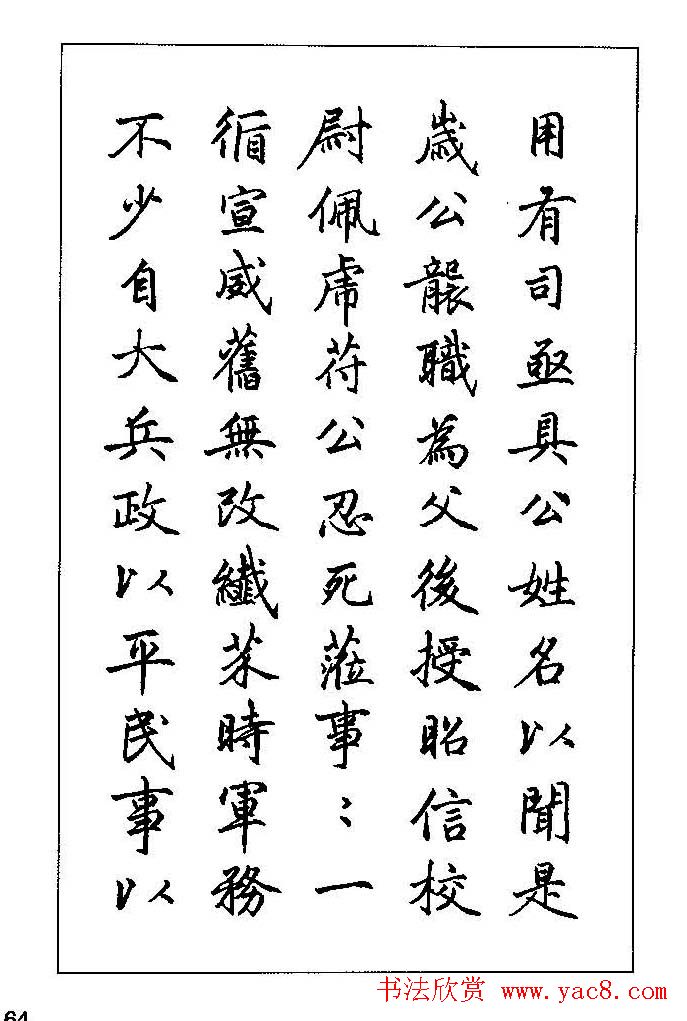 用有司亟具公姓名以聞是
歲公襲職為父後授昭信校
尉佩虎符公忍死蒞事：一
循宣威舊無改纖芥時軍務
不少自大兵政以平民事以
64
书法欣赏 www.yac8.com